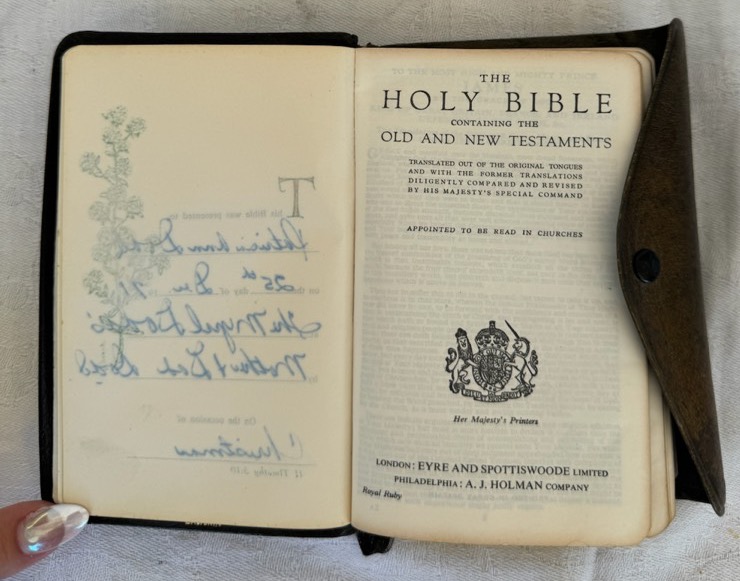 This Bible was presented to
Patricia Ann
on the 25 day of Dec
by
by Mother & Dad
On the occasion of
Christmas
II Timothy
THE
HOLY BIBLE
CONTAINING THE
OLD AND NEW TESTAMENTS
TRANSLATED OUT OF THE ORIGINAL TONGUES
AND WITH THE FORMER TRANSLATIONS
DILIGENTLY COMPARED AND REVISED
BY HIS MAJESTY'S SPECIAL COMMAND
APPOINTED TO BE READ IN CHURCHES
Her Majesty's Printers
LONDON: EYRE AND SPOTTISWOODE LIMITED
PHILADELPHIA: A. J. HOLMAN COMPANY
Royal Ruby